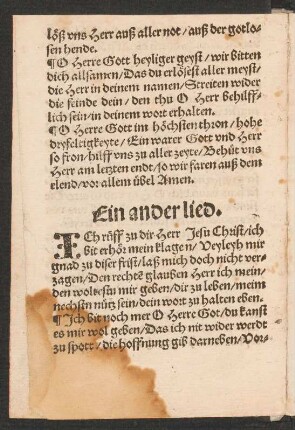 löß vns Herr auß aller not / auß der gotlo-
sen hende.
¶ O Herre Gott heyliger geyst / wir bitten
dich allsamen / Das du erlösest aller meyst /
die Herr in deinem namen / Streiten wider
die feinde dein / den thu O Herr behilff-
lich sein / in deinem wort erhalten.
¶ O Herre Gott im höchsten thron / hohe
dryfeltigkeyte / Ein warer Gott vnd Herr
so fron / hilff vns zu aller zeyte / Behüt vns
Herr am letzten endt / so wir faren auß dem
elend / vor allem übel Amen.
Ein ander lied.
ICh rüff zu dir Herr Jesu Christ / ich
bit erhör mein klagen / Verleyh mir
gnad zu diser frist / laß mich doch nicht ver-
zagen / Den rechte glauben Herr ich mein /
den wolestu mir geben / dir zu leben / meim
nechsten nütz sein / dein wort zu halten eben.
¶ Ich bit noch mer O Herre Got / du kanst
es mir wol geben / Das ich nit wider werdt
zu spott / die hoffnung gib darneben / Vor-